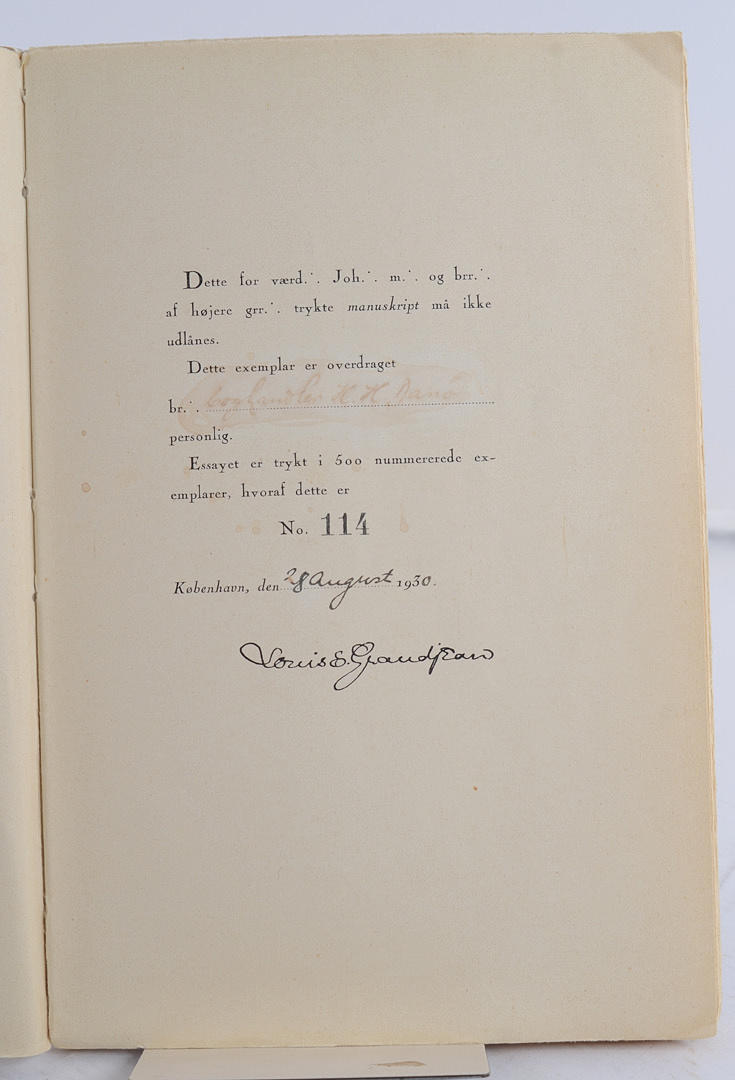 Dette for værd.·. Joh.·. m.·. og brr.·.
af højere grr.·. trykte manuskript må ikke
udlånes.
Dette exemplar er overdraget
br.·. boghandler H. H.
personlig.
Essayet er trykt i 500 nummererede ex-
emplarer, hvoraf dette er
No. 114
København, den 28 August 1930.
Louis E. Grandjean